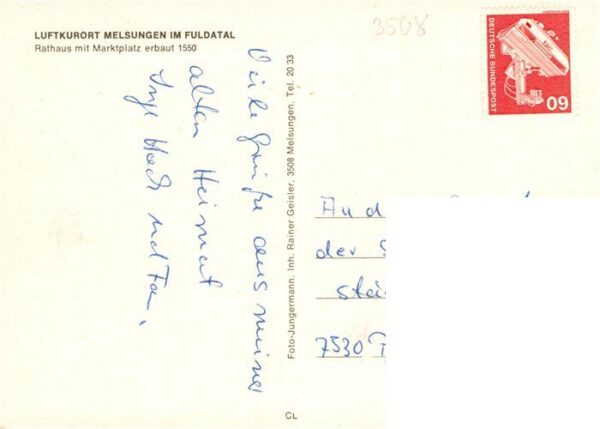 LUFTKURORT MELSUNGEN IM FULDATAL
Rathaus mit Marktplatz erbaut 1550
Viele Grüße aus meiner
alten Heimat
Inge und Fam.
Foto-Jungermann, Inh. Rainer Geisler, 3508 Melsungen, Tel. 20 33
CL
3508
DEUTSCHE BUNDESPOST
60
An d
der S
stä
7530